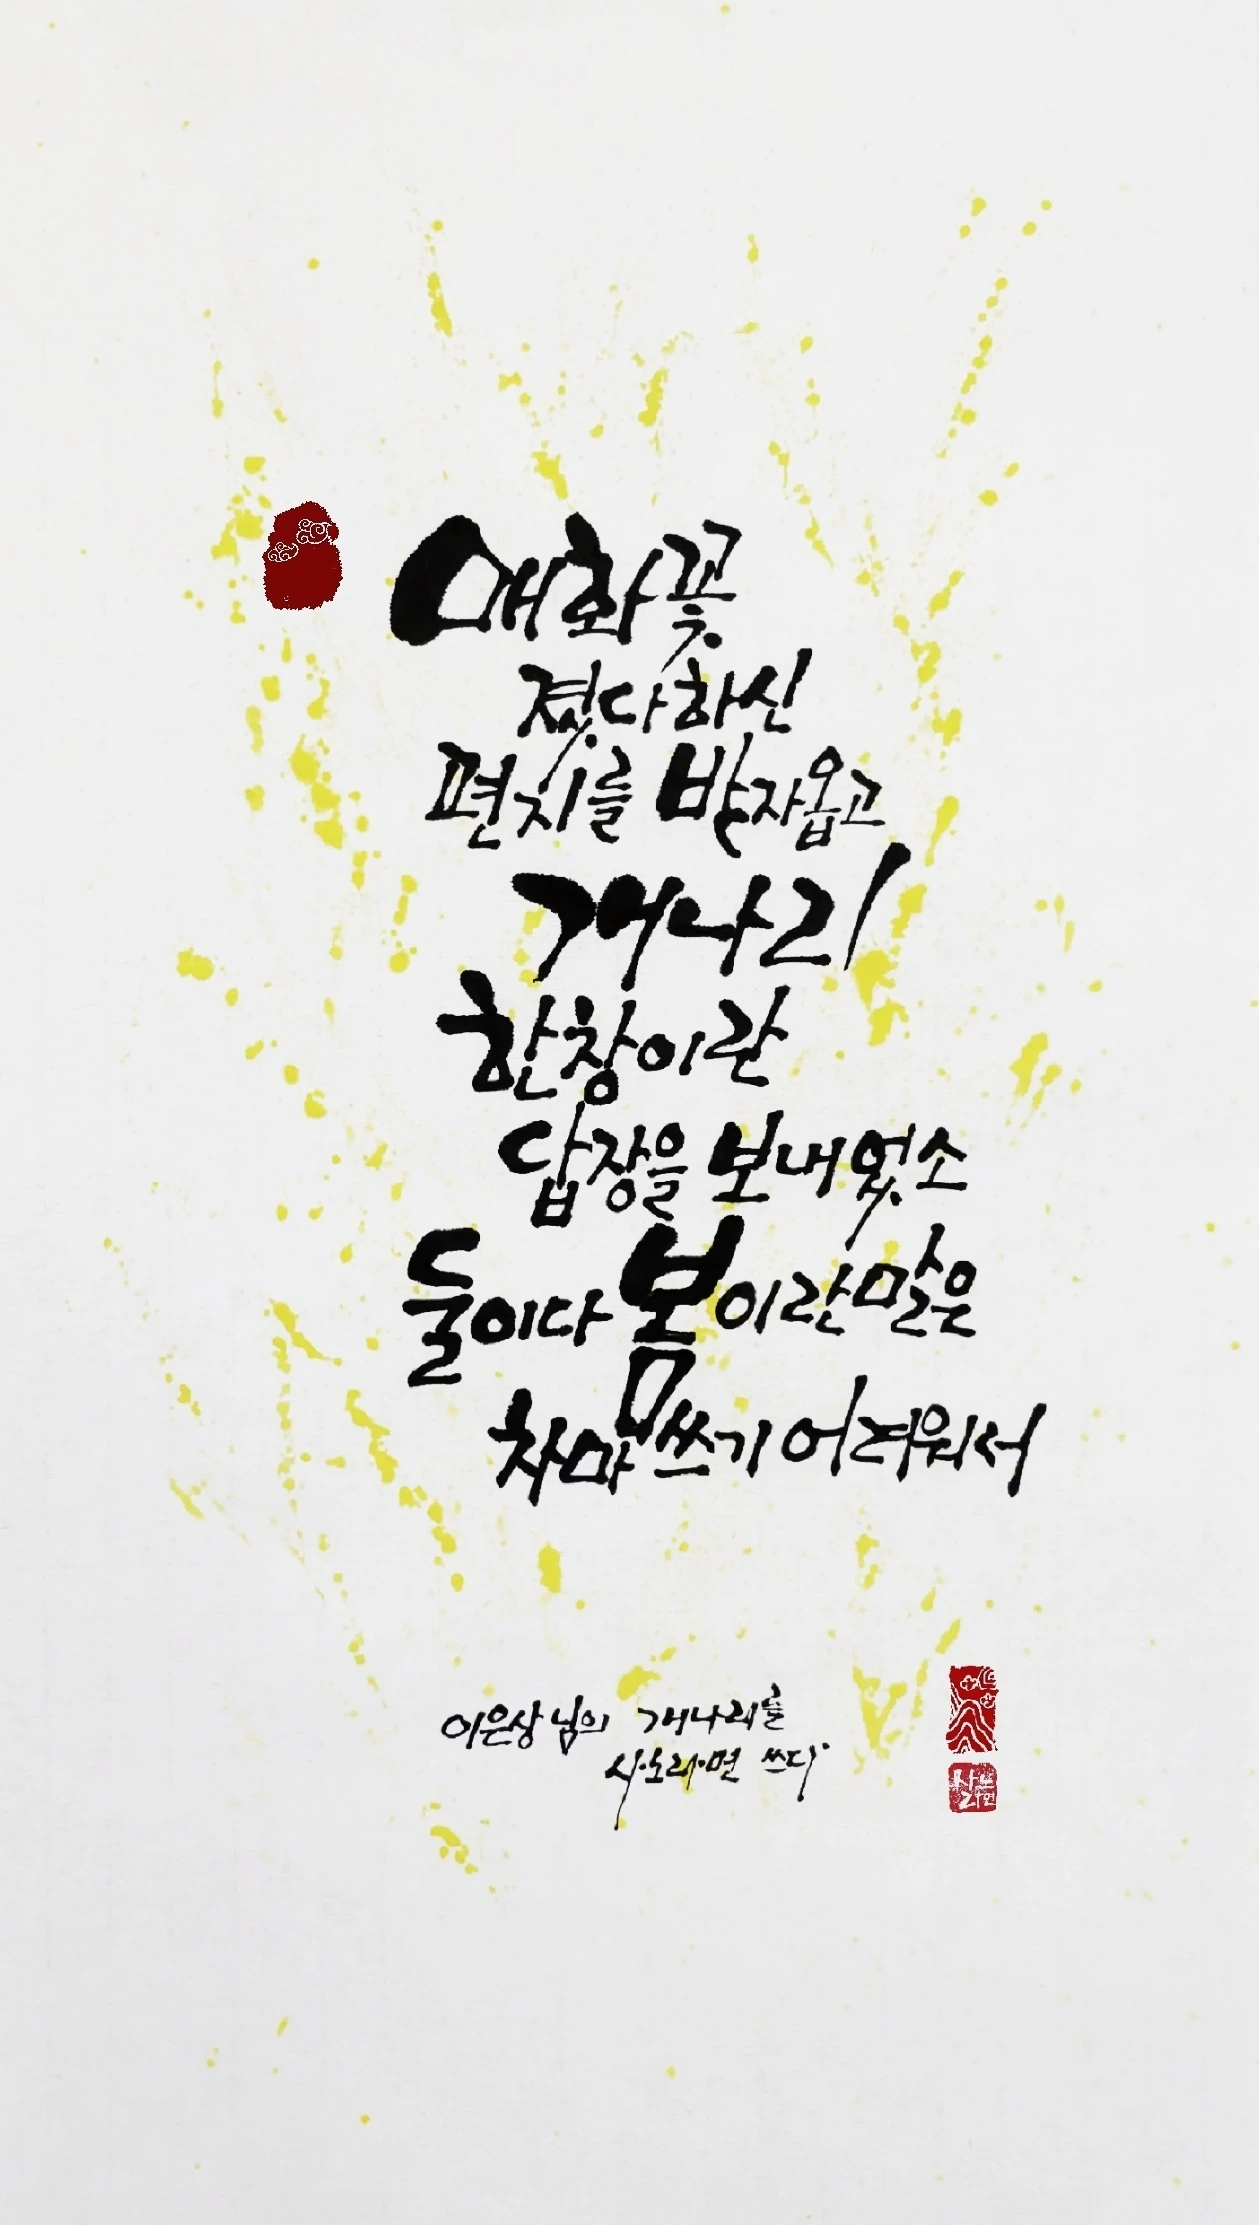 매화꽃
졌다하신
편지를 받자옵고
개나리
한창이란
답장을 보내었소
둘이다 봄이란말은
차마쓰기 어려워서
이은상님의 개나리를
사노라면 쓰다
사노라면